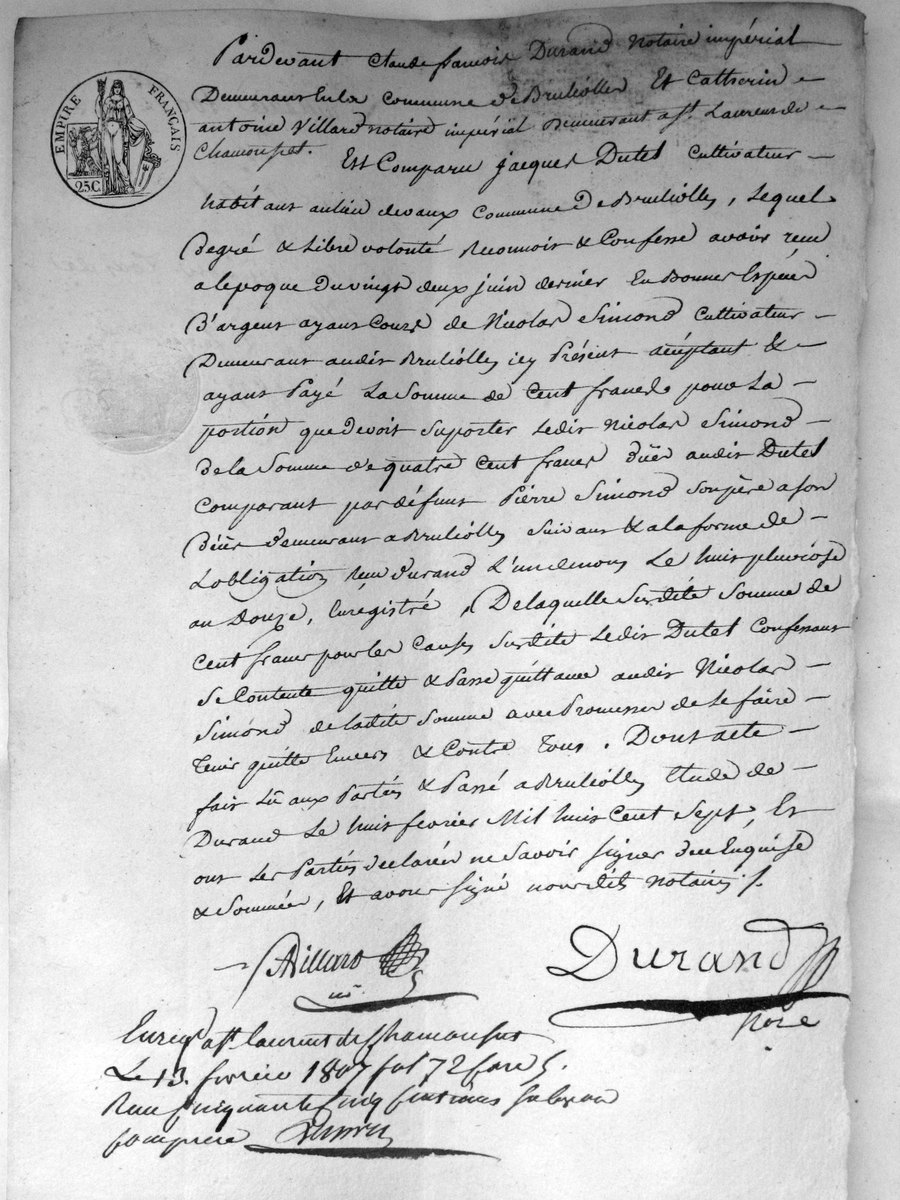 EMPIRE FRANÇAIS
25 C.
Pardevant Claude françois Durand Notaire impérial
Demeurant en la Commune de Brulliolles Et Catherin
antoine Villard notaire impérial Demeurant a St. Laurent de
Chamousset. Est Comparu jacques Dutel Cultivateur
habitant au lieu devaux Commune de Brulliolles, Lequel
De gré & Libre volonté Reconnoit & Confesse avoir recu
a lepoque du vingt deux juin dernier En Bonnes Espéces
D'argent ayant Cours de Nicolas Simond Cultivateur
Demeurant audit Brulliolles icy Présent acceptant &
ayant Payé La Somme de Cent francs pour La
portion que devoit Suporter Ledit Nicolas Simond
De la Somme de quatre Cent francs Düe audit Dutel
Comparant par défunt Pierre Simond Son père a Son
Décès demeurant a Brulliolles Suivant & a la forme de
Lobligation recu Durand L'un de nous Le huit pluviose
an Douze, Enregistré, De laquelle Susdite Somme de
Cent francs pour les Causes Susdite Ledit Dutel Confessant
Se Contente quitte & Passe quittance audit Nicolas
Simond de ladite Somme avec Promesse de Le faire
Tenir quitte Envers & Contre Tous. Dont acte
fait Lû aux Parties & Passé a Brulliolles Etude de
Durand Le huit fevrier Mil huit Cent Sept, Et
ont Les Parties declarées ne Savoir Signer De ce Enquise
& Sommées, Et avons Signé nousdits notaires ./.
Villard Durand
nre
Enregé a St. laurent de Chamousset
Le 13 fevrier 1807 fol 72
Reçu Cinquante Cinq Centimes